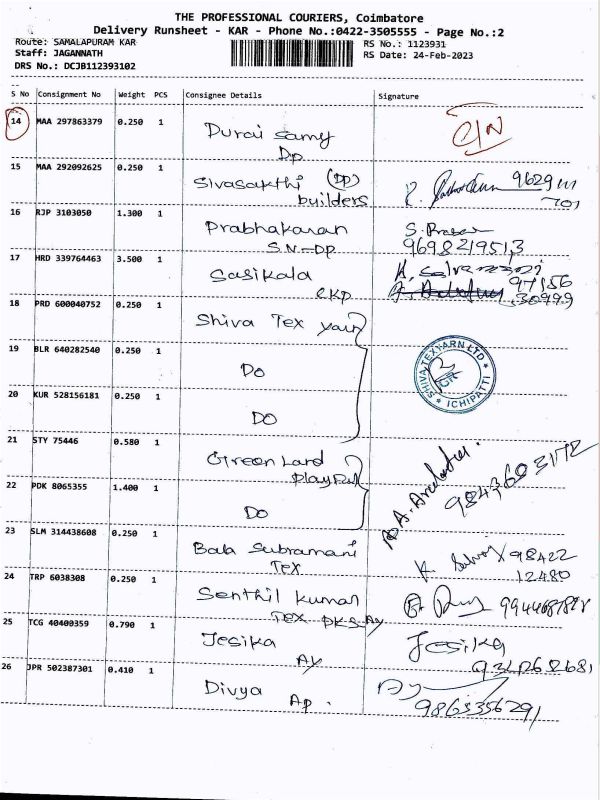 THE PROFESSIONAL COURIERS, Coimbatore
Delivery Runsheet - KAR - Phone No.:0422-3505555 - Page No.:2
Route: SAMALAPURAM KAR
RS No.: 1123931
Staff: JAGANNATH
RS Date: 24-Feb-2023
DRS No.: DCJB112393102
S No Consignment No Weight PCS Consignee Details Signature
14 MAA 297863379 0.250 1 Durai Samy
Dp
15 MAA 292092625 0.250 1 Sivasakthi (DP)
builders
16 RJP 3103050 1.300 1 Prabhakaran
S.N-DP
9698219513
17 HRD 339764463 3.500 1 Sasikala
CKP
18 PRD 600040752 0.250 1 Shiva Tex yarn
19 BLR 640282540 0.250 1 DO
SHIVA TEXYARN LTD
ICHIPATTI
20 KUR 528156181 0.250 1 DO
21 STY 75446 0.580 1 Green Land
22 PDK 8065355 1.400 1 DO
9843603172
23 SLM 314438608 0.250 1 Bala Subramani
Tex
98422
12480
24 TRP 6038308 0.250 1 Senthil Kumar
Tex PKS-Ay
25 TCG 40400359 0.790 1 Jesika Jesika
Ay
26 JPR 502387301 0.410 1 Divya
Ap.
9865356291